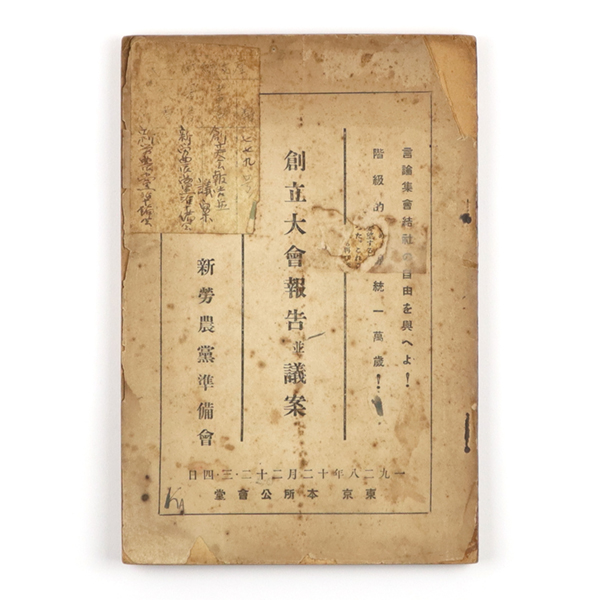 言論集會結社の自由を與へよ！
階級的　統一萬歲！
創立大會報告並議案
新勞農黨準備會
一九二八年十二月二十二・三・四日
東京　本所公會堂
創立大会報告並
議案
新労農党準備会